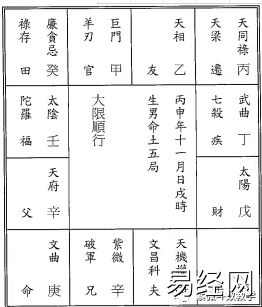 天同祿 丙
天梁 遷
天相 乙
友
巨門 甲
羊刃 官
廉貪忌 癸
祿存 田
武曲 丁
七殺 疾
丙申年十一月日戌時
生男命土五局
大限順行
太陰 壬
陀羅 福
太陽 戊
財
天府 辛
父
天機權
文昌科 夫
紫微 辛
破軍 兄
文曲 庚
命
易经网